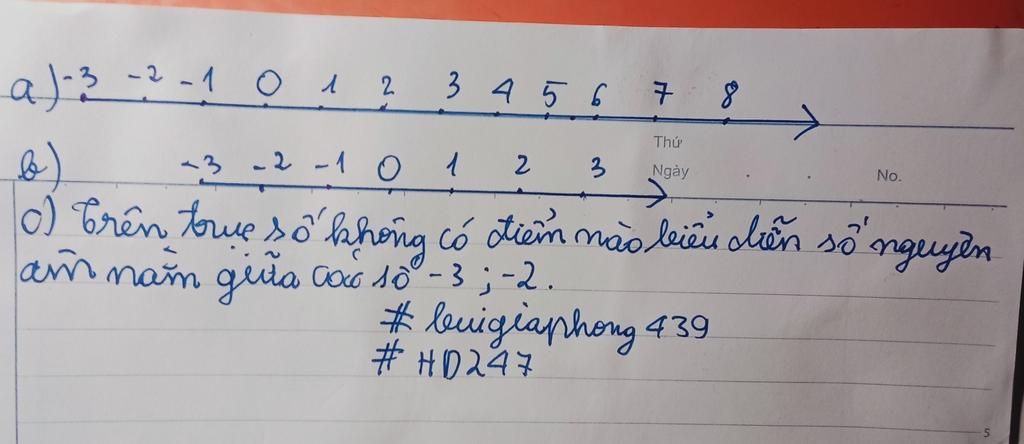 a) -3 -2 -1 0 1 2 3 4 5 6 7 8
Thứ
b) -3 -2 -1 0 1 2 3
Ngày
No.
c) Trên trục số không có điểm nào biểu diễn số nguyên
âm nằm giữa các số -3 ; -2.
# buigiaphong439
# HD247
5